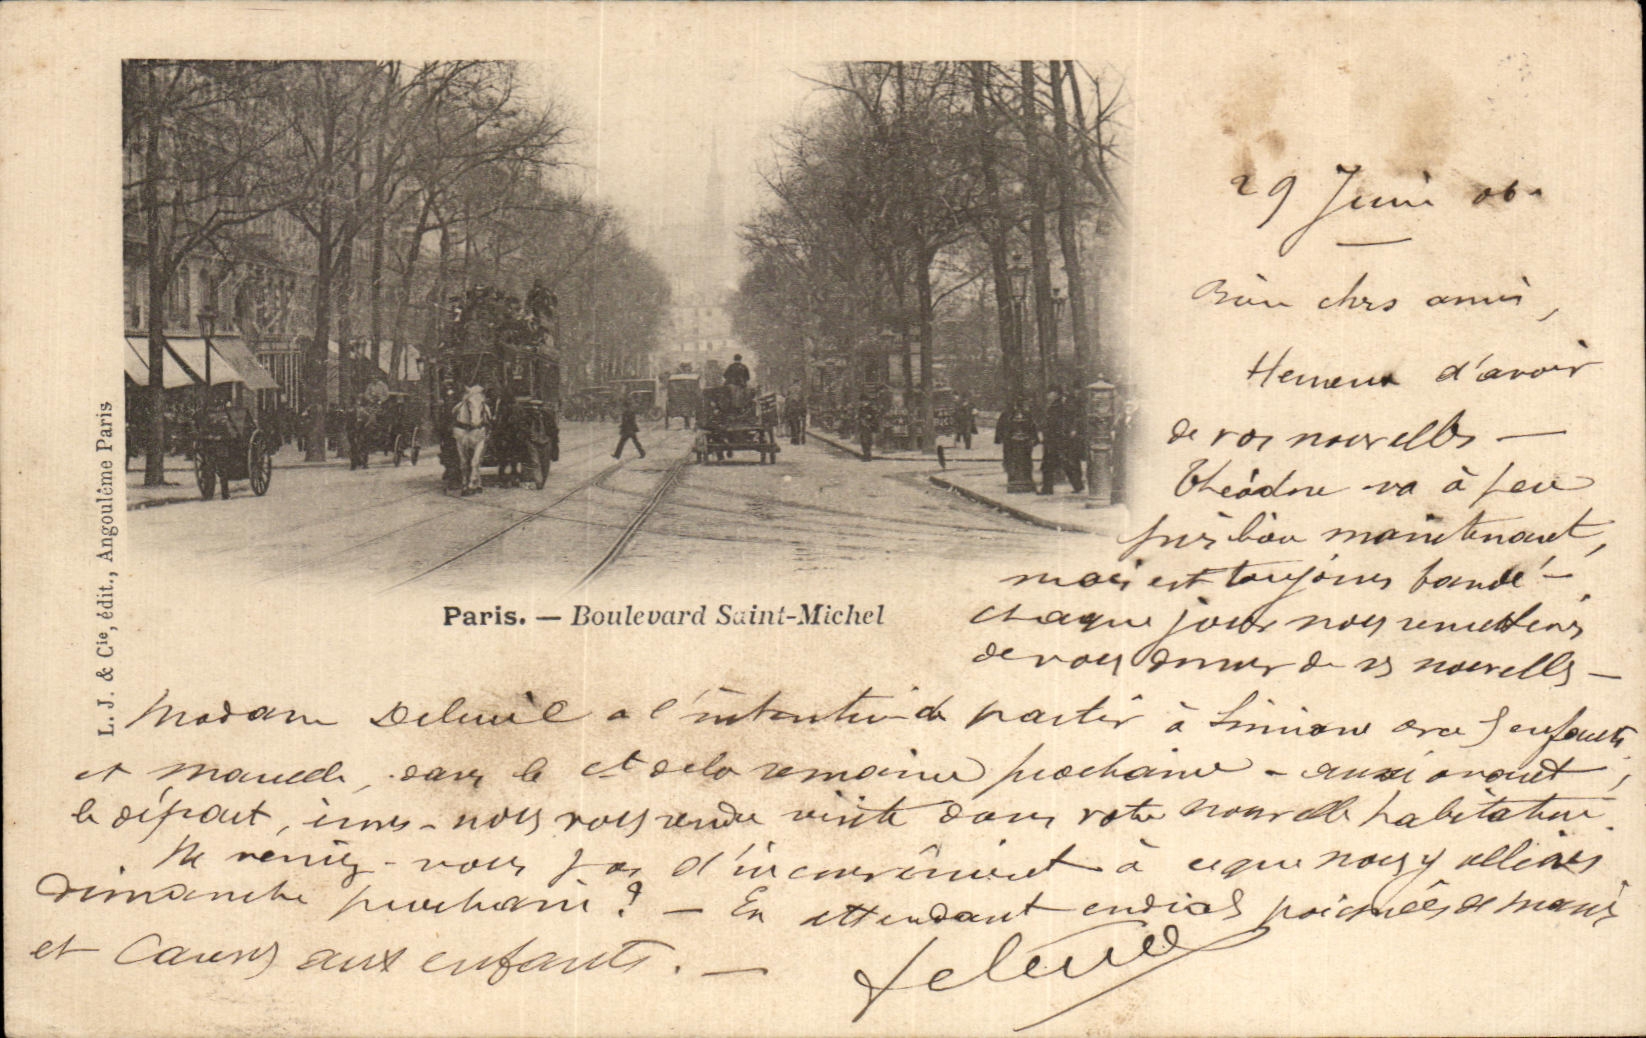 29 Juin 06.
Bien chers amis,
Heureux d'avoir
de vos nouvelles —
Théodore va à peu
près bien maintenant,
mais est toujours bandé —
chaque jour nous remettions
de vous donner de ses nouvelles —
Madame Deleuil a l'intention de partir à Simiane avec enfants
et, dans le ct de la semaine prochaine - aussi avant,
le départ, irons-nous vous rendre visite dans votre nouvelle habitation.
Ne verriez-vous pas d'inconvénient à ce que nous y allions
Dimanche prochain? — En attendant cordiales poignées de mains
et caresses aux enfants. —
Deleuil
Paris. — Boulevard Saint-Michel
L. J. & Cie, édit., Angoulême Paris